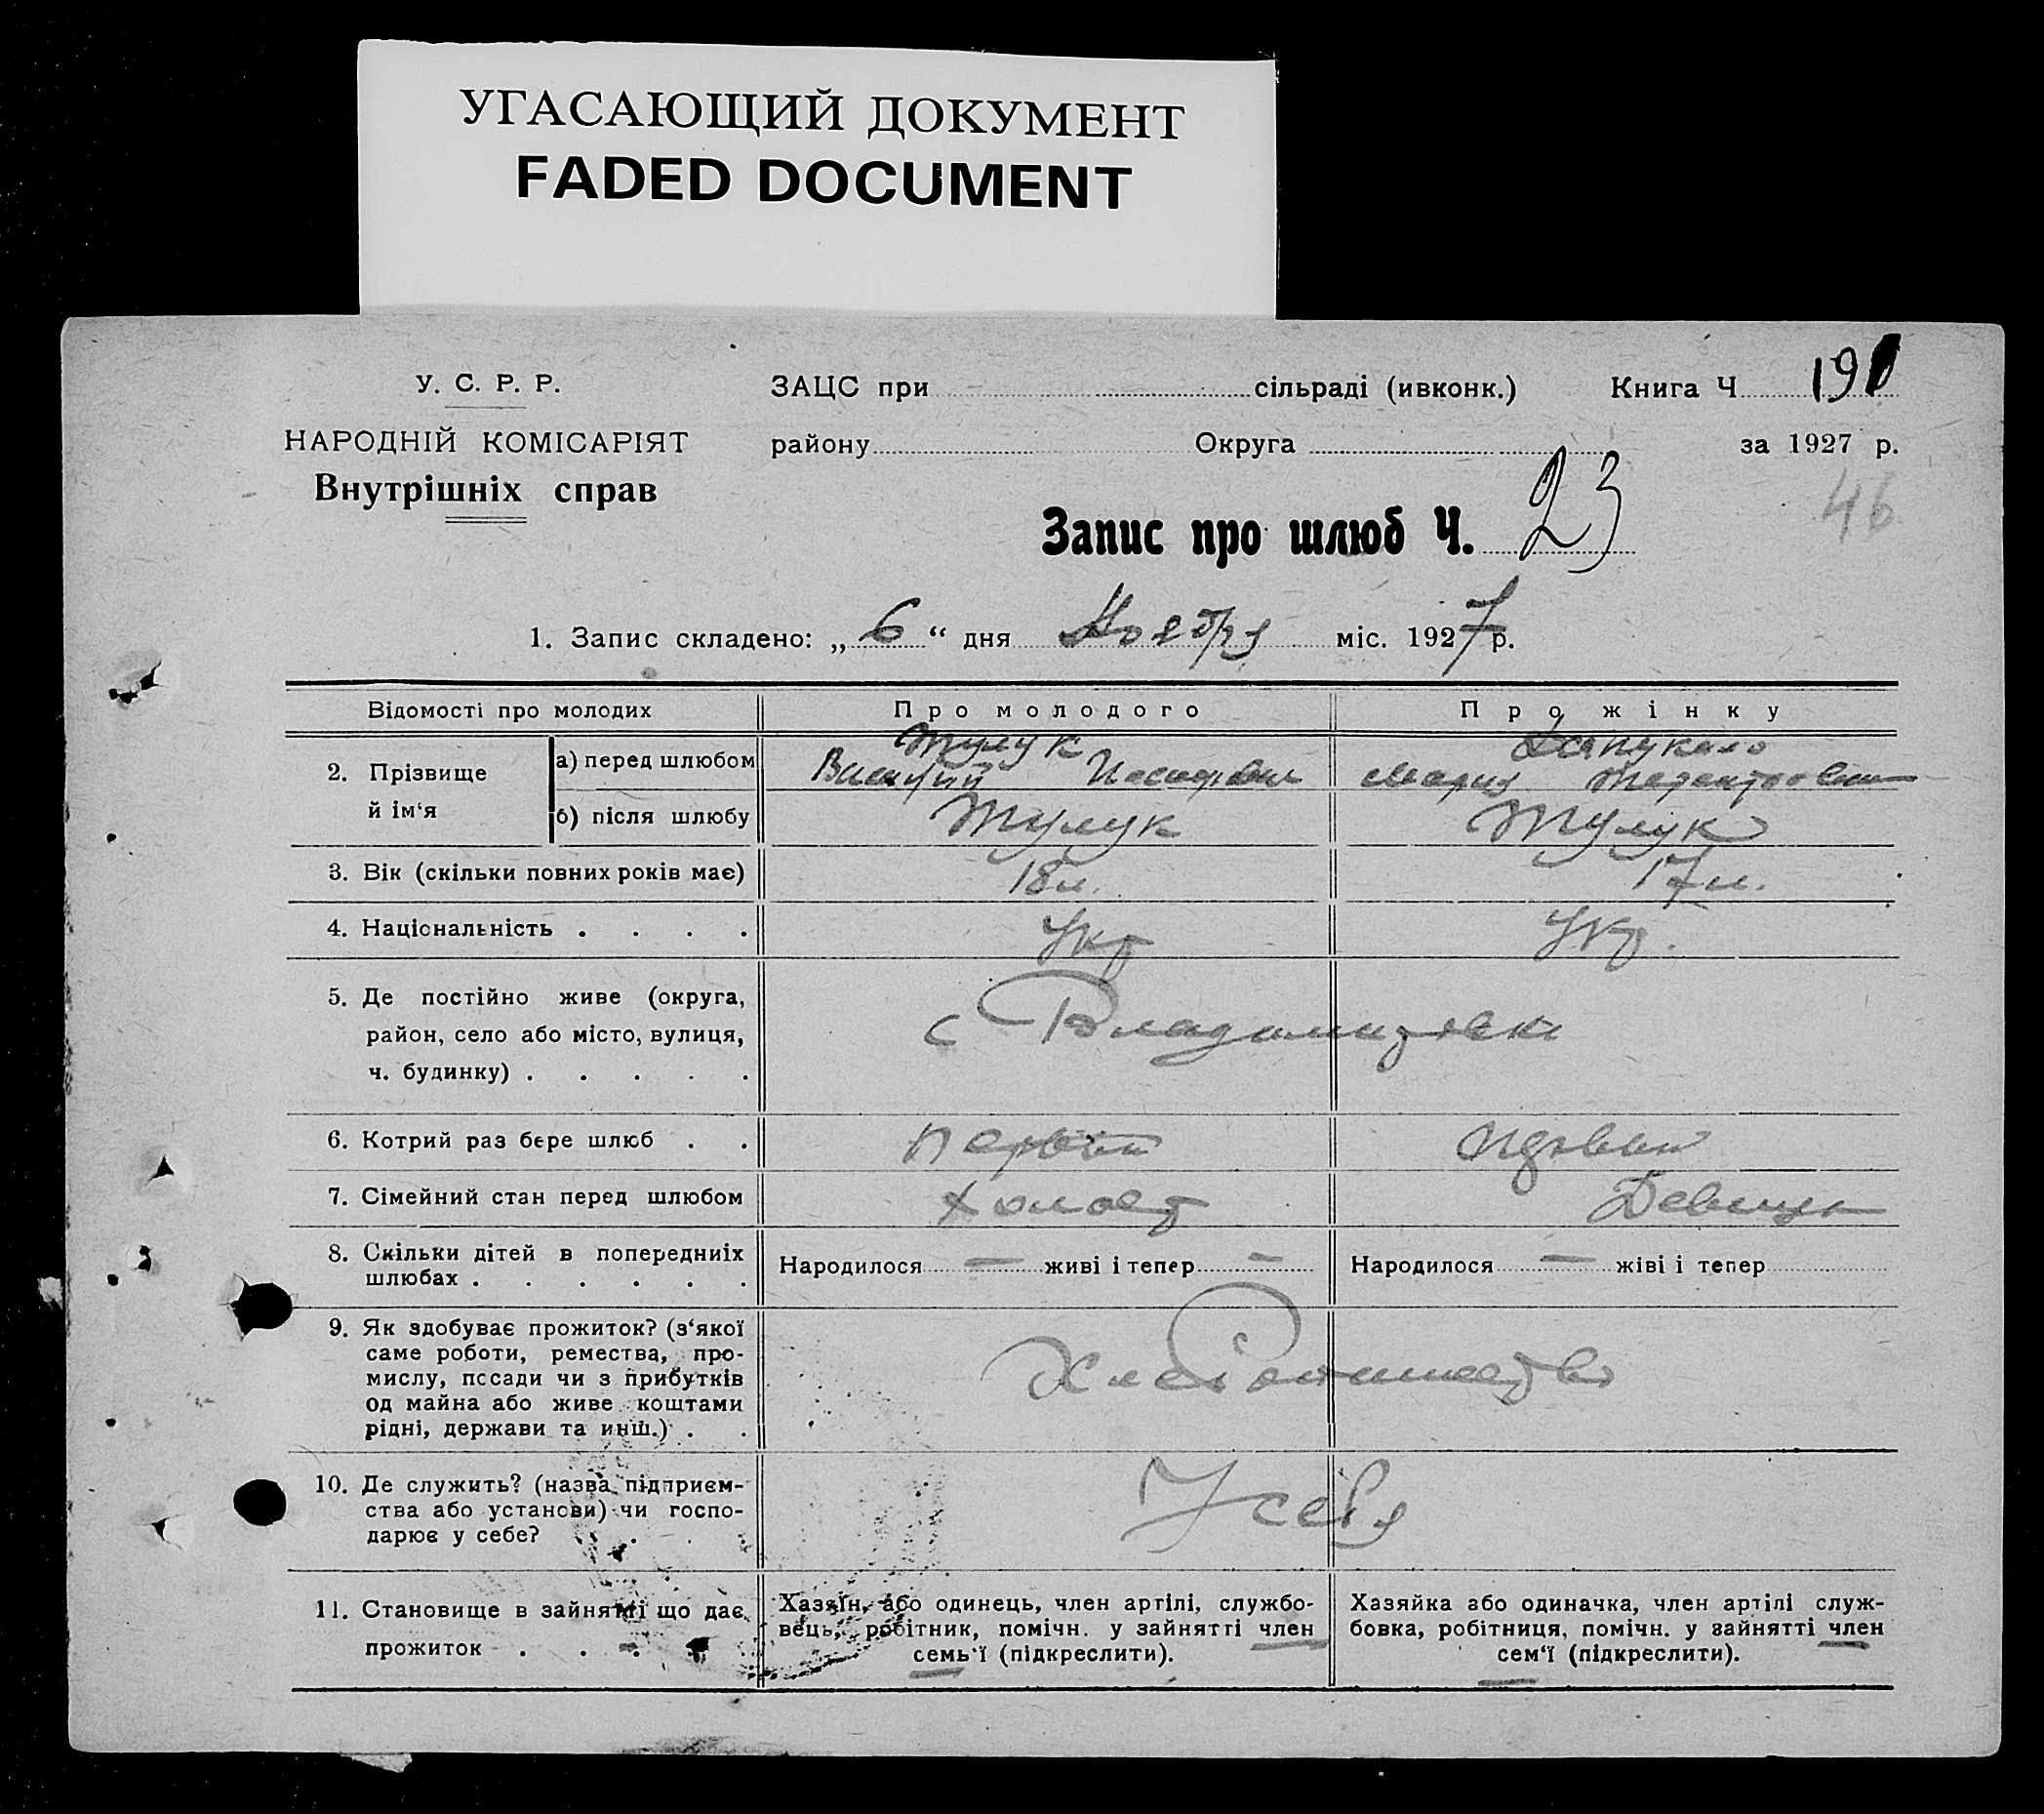 УГАСАЮЩИЙ ДОКУМЕНТ
FADED DOCUMENT
У. С. Р. Р.
НАРОДНІЙ КОМІСАРІЯТ
Внутрішніх справ
ЗАЦС при сільраді (ивконк.) Книга Ч 191
району Округа за 1927 р.
46
Запис про шлюб Ч. 23
1. Запис складено: „6“ дня Ноября міс. 1927 р.
Відомості про молодих Про молодого Про жінку
2. Прізвище й ім'я
а) перед шлюбом Тулук
Василий Мария
б) після шлюбу Тулук Тулук
3. Вік (скільки повних років має) 18 л. 17 л.
4. Національність . . . . Укр Укр.
5. Де постійно живе (округа,
район, село або місто, вулиця,
ч. будинку) . . . . .
с Владимировка
6. Котрий раз бере шлюб . . первый первый
7. Сімейний стан перед шлюбом холост Девица
8. Скільки дітей в попередниіх
шлюбах . . . . . .
Народилося — живі і тепер — Народилося — жіві і тепер
9. Як здобуває прожиток? (з'якої
саме роботи, ремества, про-
мислу, посади чи з прибутків
од майна або живе коштами
рідні, держави та инш.) . .
Хлебопашество
10. Де служить? (назва підприєм-
ства або установи) чи госпо-
дарює у себе?
У себя
11. Становище в зайнятті що дає
прожиток . . . .
Хазяїн, або одинець, член артілі, службо-
вець, робітник, помічн. у зайнятті член
семь'ї (підкреслити).
Хазяйка або одиначка, член артілі служ-
бовка, робітниця, помічн. у зайнятті член
сем'ї (підкреслити).